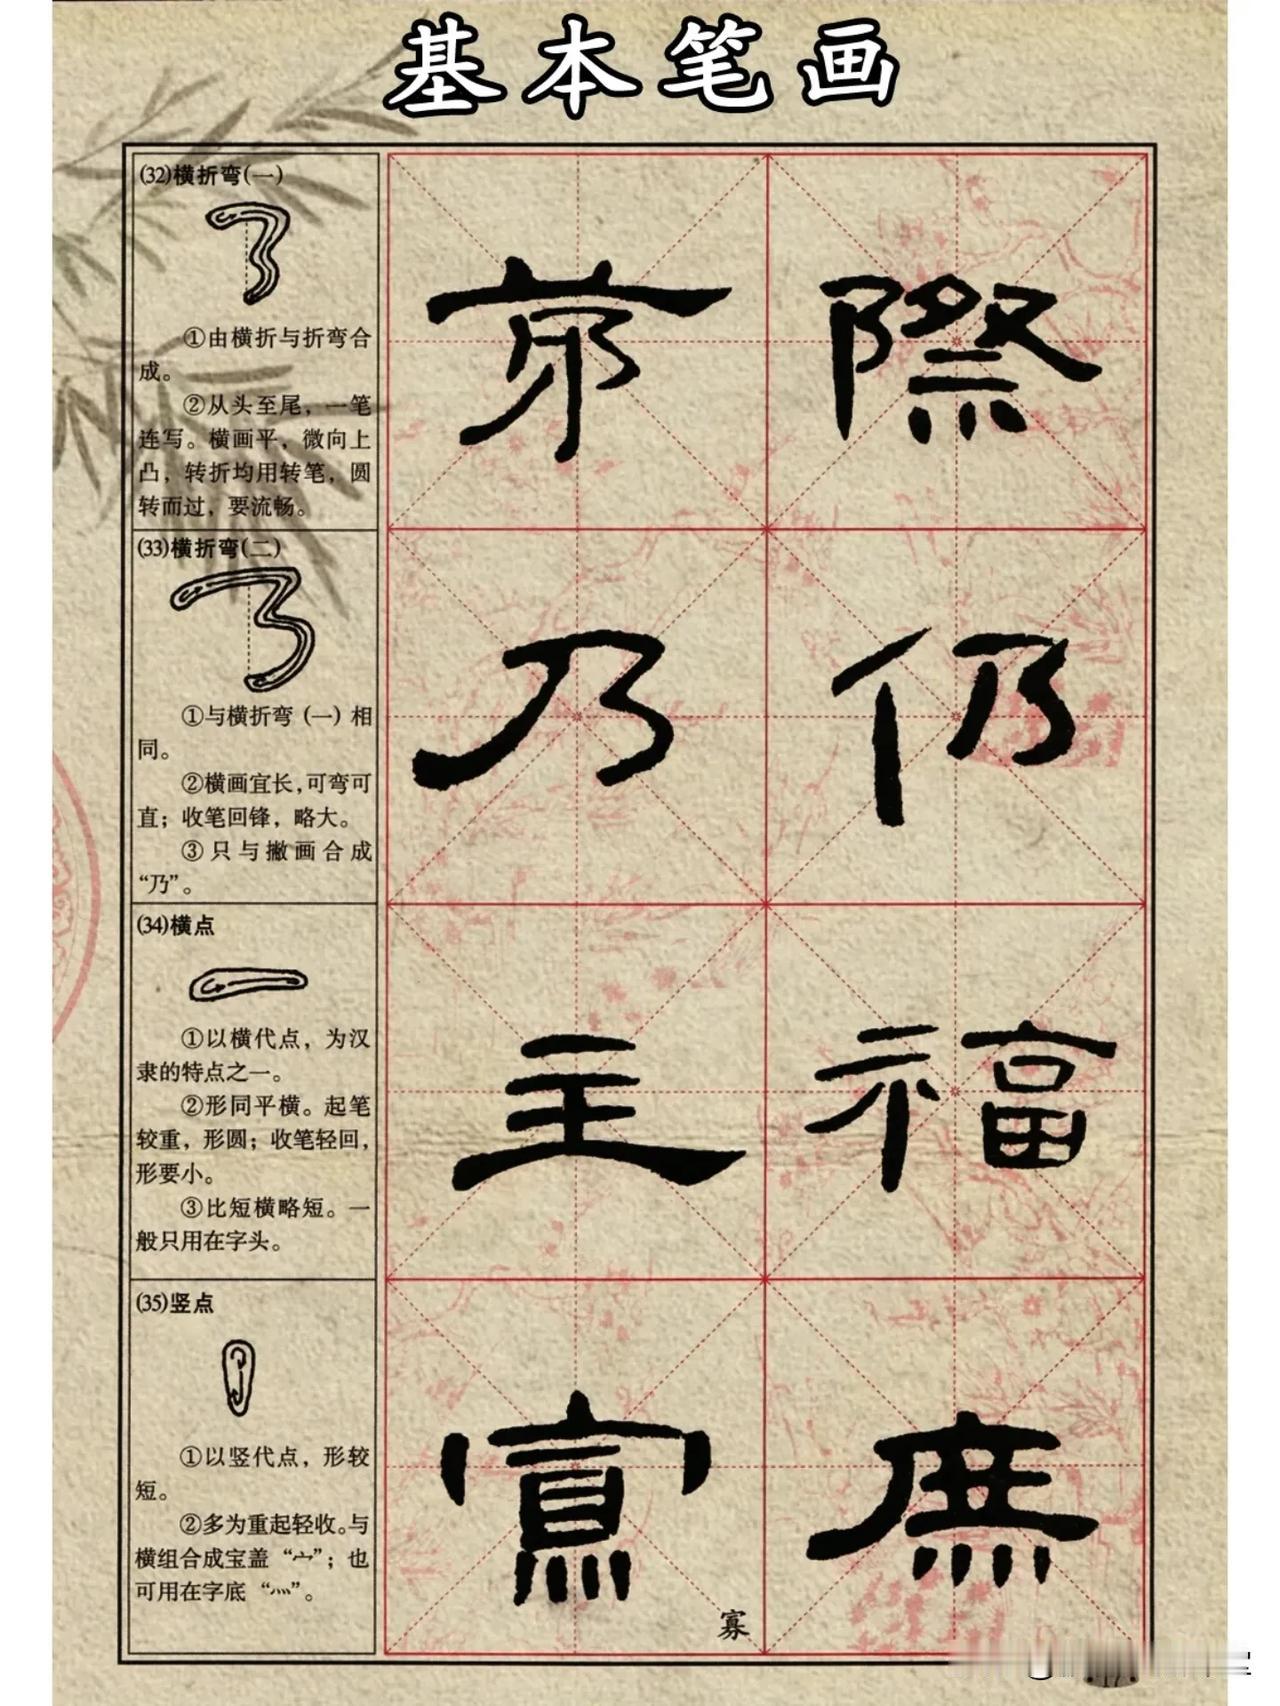 基本笔画
(32)横折弯(一)
①由横折与折弯合
成。
②从头至尾，一笔
连写。横画平，微向上
凸，转折均用转笔，圆
转而过，要流畅。
(33)横折弯(二)
①与横折弯（一）相
同。
②横画宜长，可弯可
直；收笔回锋，略大。
③只与撇画合成
“乃”。
(34)横点
①以横代点，为汉
隶的特点之一。
②形同平横。起笔
较重，形圆；收笔轻回，
形要小。
③比短横略短。一
般只用在字头。
(35)竖点
①以竖代点，形较
短。
②多为重起轻收。与
横组合成宝盖“宀”；也
可用在字底“灬”。
際
乃 仍
主 福
寡
17